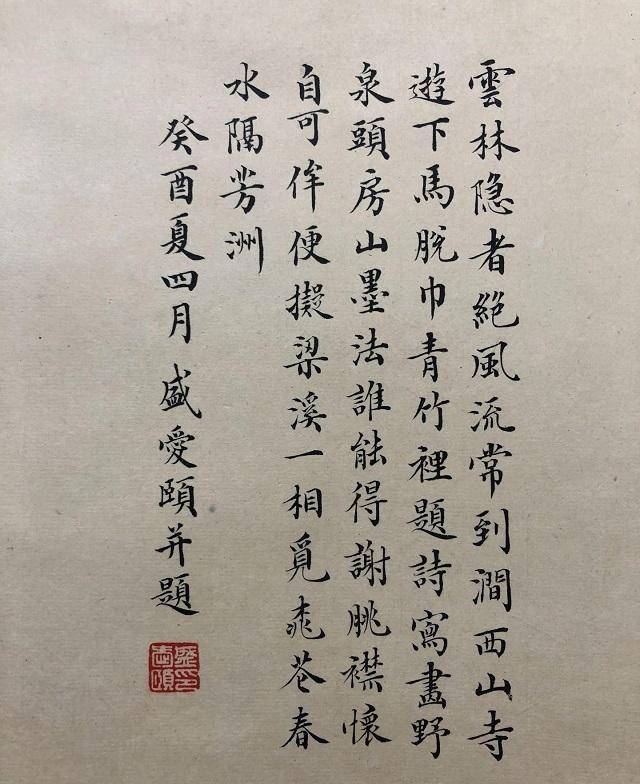 雲林隐者絕風流常到澗西山寺
遊下馬脫巾青竹裡題詩寫畫野
泉頭房山墨法誰能得謝脁襟懷
自可侔便擬梁溪一相覓桃芲春
水隔芳洲
癸酉夏四月盛愛頤并題
盛愛頤印